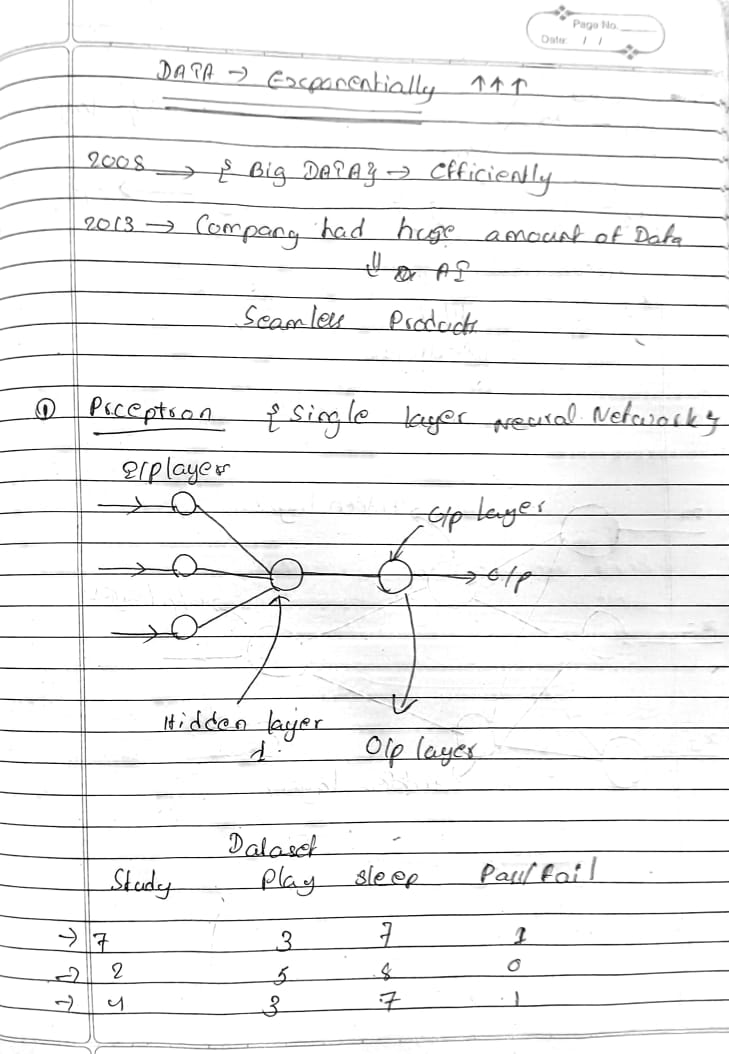 Page No.
Date: / /
DATA → Exponentially ↑↑↑
2008 → { Big DATA} → Efficiently
2013 → Company had huge amount of Data
⇓ AI
Seamless Products
① Perceptron { Single layer neural Network}
I/P layer
O/p layer
→ O/p
Hidden layer
1.
O/p layer
Dataset
Study Play Sleep Pass/Fail
→ 7 3 7 1
→ 2 5 8 0
→ 4 3 7 1